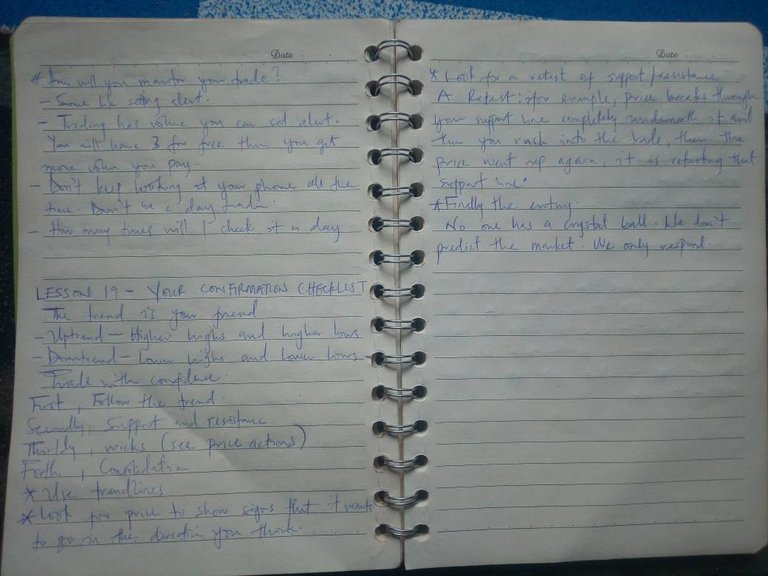 Date
* How will you monitor your trade?
- Some like setting alert.
- Trading has you can set alert.
You will have 3 for free then you get
more when you pay.
- Don't keep looking at your phone all the
time. Don't be a day trader.
- How many times will I check it a day
LESSON 19 - YOUR CONFIRMATION CHECKLIST
The trend is your friend
- Uptrend - Higher highs and higher lows
- Downtrend - Lower highs and lower lows
Trade with confidence
First, Follow the trend
Secondly, Support and resistance
Thirdly, wicks (see price actions)
Forth, Consolidation
* Use trendlines
* Look for price to show signs that it wants
to go in the direction you think.
Date
* Look for a retest of support/resistance
A Retest: for example, price breaks through
your support line completely underneath it and
then you rush into the trade, then the
price went up again, it is retesting that
support line.
* Finally the entry
No one has a crystal ball. We don't
predict the market. We only respond.